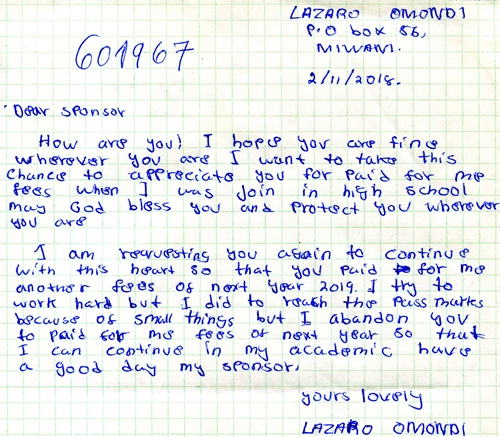 LAZARO OMONDI
P.O box 56,
MIWANI.
601967
2/11/2018.
Dear sponsor
How are you! I hope you are fine
wherever you are I want to take this
chance to appreciate you for paid for me
fees when I was join in high school
may God bless you and protect you wherever
you are
I am requesting you again to continue
with this heart so that you paid for me
another fees of next year 2019. I try to
work hard but I did to reach the pass marks
because of small things but I abandon you
to paid for me fees of next year so that
I can continue in my academic have
a good day my sponsor.
yours lovely
LAZARO OMONDI